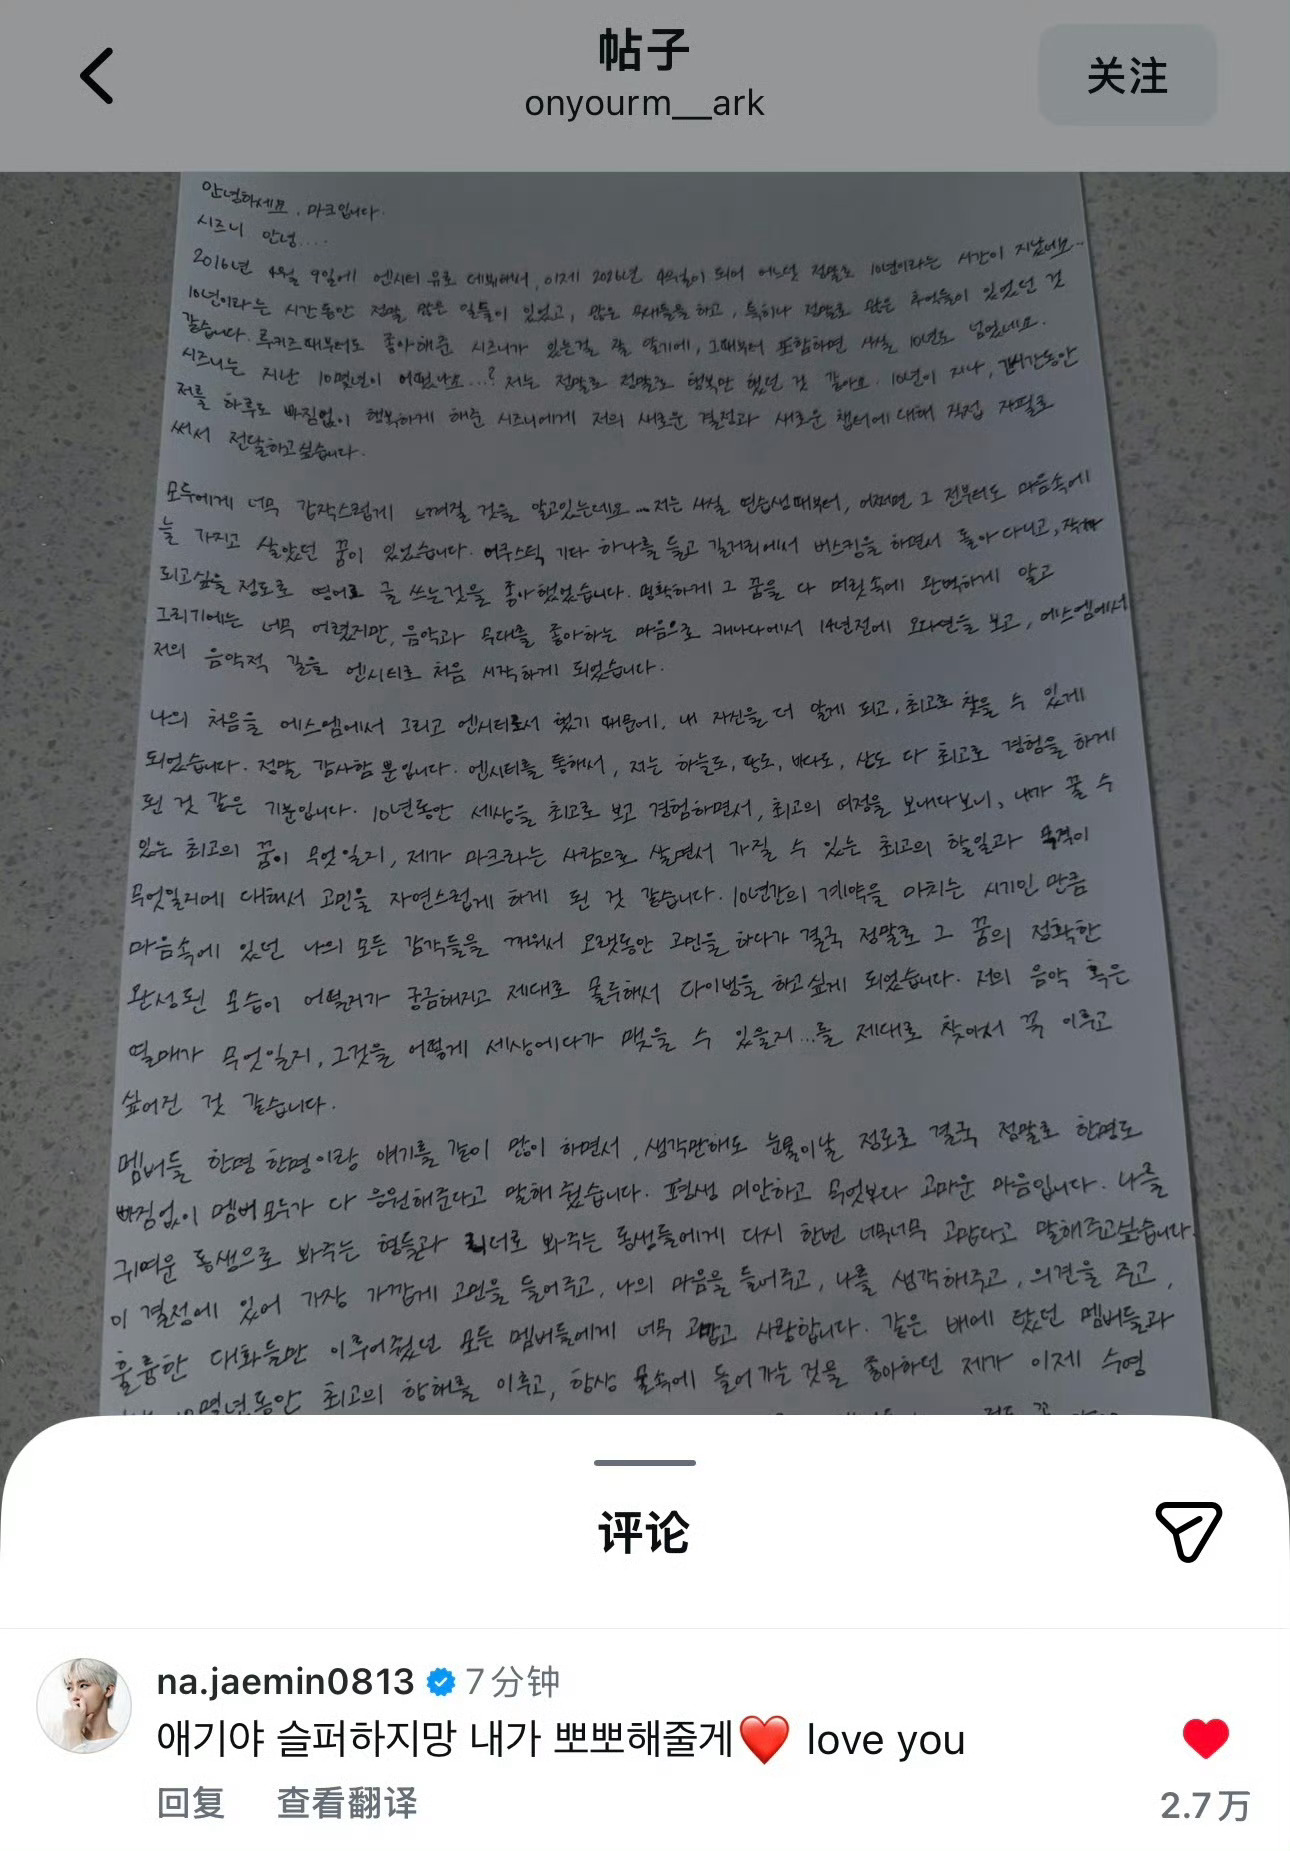 帖子
onyourm__ark
关注
안녕하세요. 마크입니다.
시즈니 안녕....
2016년 4월 9일에 엔시티 유로 데뷔해서, 이제 2026년 4월이 되어 어느덧 정말로 10년이라는 시간이 지났네요...
10년이라는 시간동안 정말 많은 일들이 있었고, 많은 무대들을 하고, 특히나 정말로 많은 추억들이 있었던 것
같습니다. 루키즈때부터도 좋아해준 시즈니가 있는걸 잘 알기에, 그때부터 포함하면 사실 10년도 넘었네요.
시즈니는 지난 10몇년이 어땠나요...? 저는 정말로 정말로 행복만 했던 것 같아요. 10년이 지나, 긴시간동안
저를 하루도 빠짐없이 행복하게 해준 시즈니에게 저의 새로운 결정과 새로운 챕터에 대해 직접 자필로
써서 전달하고 싶습니다.
모두에게 너무 갑작스럽게 느껴질 것을 알고있는데요... 저는 사실 연습생때부터, 어쩌면 그 전부터도 마음속에
늘 가지고 살았던 꿈이 있었습니다. 어쿠스틱 기타 하나를 들고 길거리에서 버스킹을 하면서 돌아다니고, 작가
되고싶을 정도로 영어로 글 쓰는것을 좋아했었습니다. 명확하게 그 꿈을 다 머릿속에 완벽하게 알고
그리기에는 너무 어렸지만, 음악과 무대를 좋아하는 마음으로 캐나다에서 14년전에 오디션을 보고, 에스엠에서
저의 음악적 길을 엔시티로 처음 시작하게 되었습니다.
나의 처음을 에스엠에서 그리고 엔시티로서 했기 때문에, 내 자신을 더 알게 되고, 최고로 찾을 수 있게
되었습니다. 정말 감사함 뿐입니다. 엔시티를 통해서, 저는 하늘도, 땅도, 바다도, 산도 다 최고로 경험을 하게
된 것 같은 기분입니다. 10년동안 세상을 최고로 보고 경험하면서, 최고의 여정을 보내다보니, 내가 꿀 수
있는 최고의 꿈이 무엇일지, 제가 마크라는 사람으로 살면서 가질 수 있는 최고의 할일과 목적이
무엇일지에 대해서 고민을 자연스럽게 하게 된 것 같습니다. 10년간의 계약을 마치는 시기인 만큼
마음속에 있던 나의 모든 감각들을 깨워서 오랫동안 고민을 하다가 결국 정말로 그 꿈의 정확한
완성된 모습이 어떨런가 궁금해지고 제대로 몰두해서 다이빙을 하고싶게 되었습니다. 저의 음악 혹은
열매가 무엇일지, 그것을 어떻게 세상에다가 맺을 수 있을지...를 제대로 찾아서 꼭 이루고
싶어진 것 같습니다.
멤버들 한명 한명이랑 얘기를 같이 많이 하면서, 생각만해도 눈물이날 정도로 결국 정말로 한명도
빠짐없이 멤버 모두가 다 응원해준다고 말해 줬습니다. 평생 미안하고 무엇보다 고마운 마음입니다. 나를
귀여운 동생으로 봐주는 형들과 리더로 봐주는 동생들에게 다시 한번 너무너무 고맙다고 말해주고싶습니다.
이 결정에 있어 가장 가깝게 고민을 들어주고, 나의 마음을 들어주고, 나를 생각해주고, 의견을 주고,
훌륭한 대화들만 이루어줬던 모든 멤버들에게 너무 고맙고 사랑합니다. 같은 배에 탔던 멤버들과
10몇년동안 최고의 항해를 이루고, 항상 물속에 들어가는 것을 좋아하던 제가 이제 수영
评论
na.jaemin0813 7分钟
애기야 슬퍼하지망 내가 뽀뽀해줄게❤️ love you
回复 查看翻译
2.7万